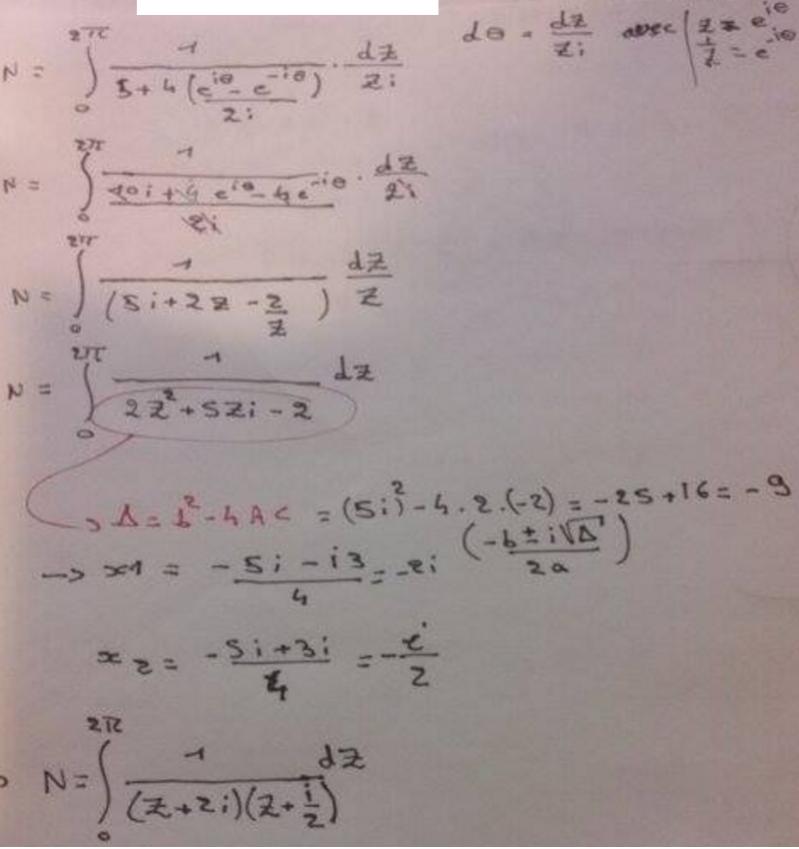 N = ∫₀^{2π} 1/(5+4(e^{iθ} - e^{-iθ})/2i) · dz/zi    dθ = dz/zi avec | z = e^{iθ}, 1/z = e^{-iθ}
N = ∫₀^{2π} 1/((10i+4e^{iθ} - 4e^{-iθ})/2i) · dz/zi
N = ∫₀^{2π} 1/(5i+2z - 2/z) dz/z
N = ∫₀^{2π} 1/(2z²+5zi-2) dz
→ Δ = b²-4AC = (5i)² - 4.2.(-2) = -25+16 = -9
→ x1 = (-5i - i3)/4 = -2i ((-b ± i√Δ)/2a)
x2 = (-5i+3i)/4 = -i/2
N = ∫₀^{2π} 1/((z+2i)(z+i/2)) dz